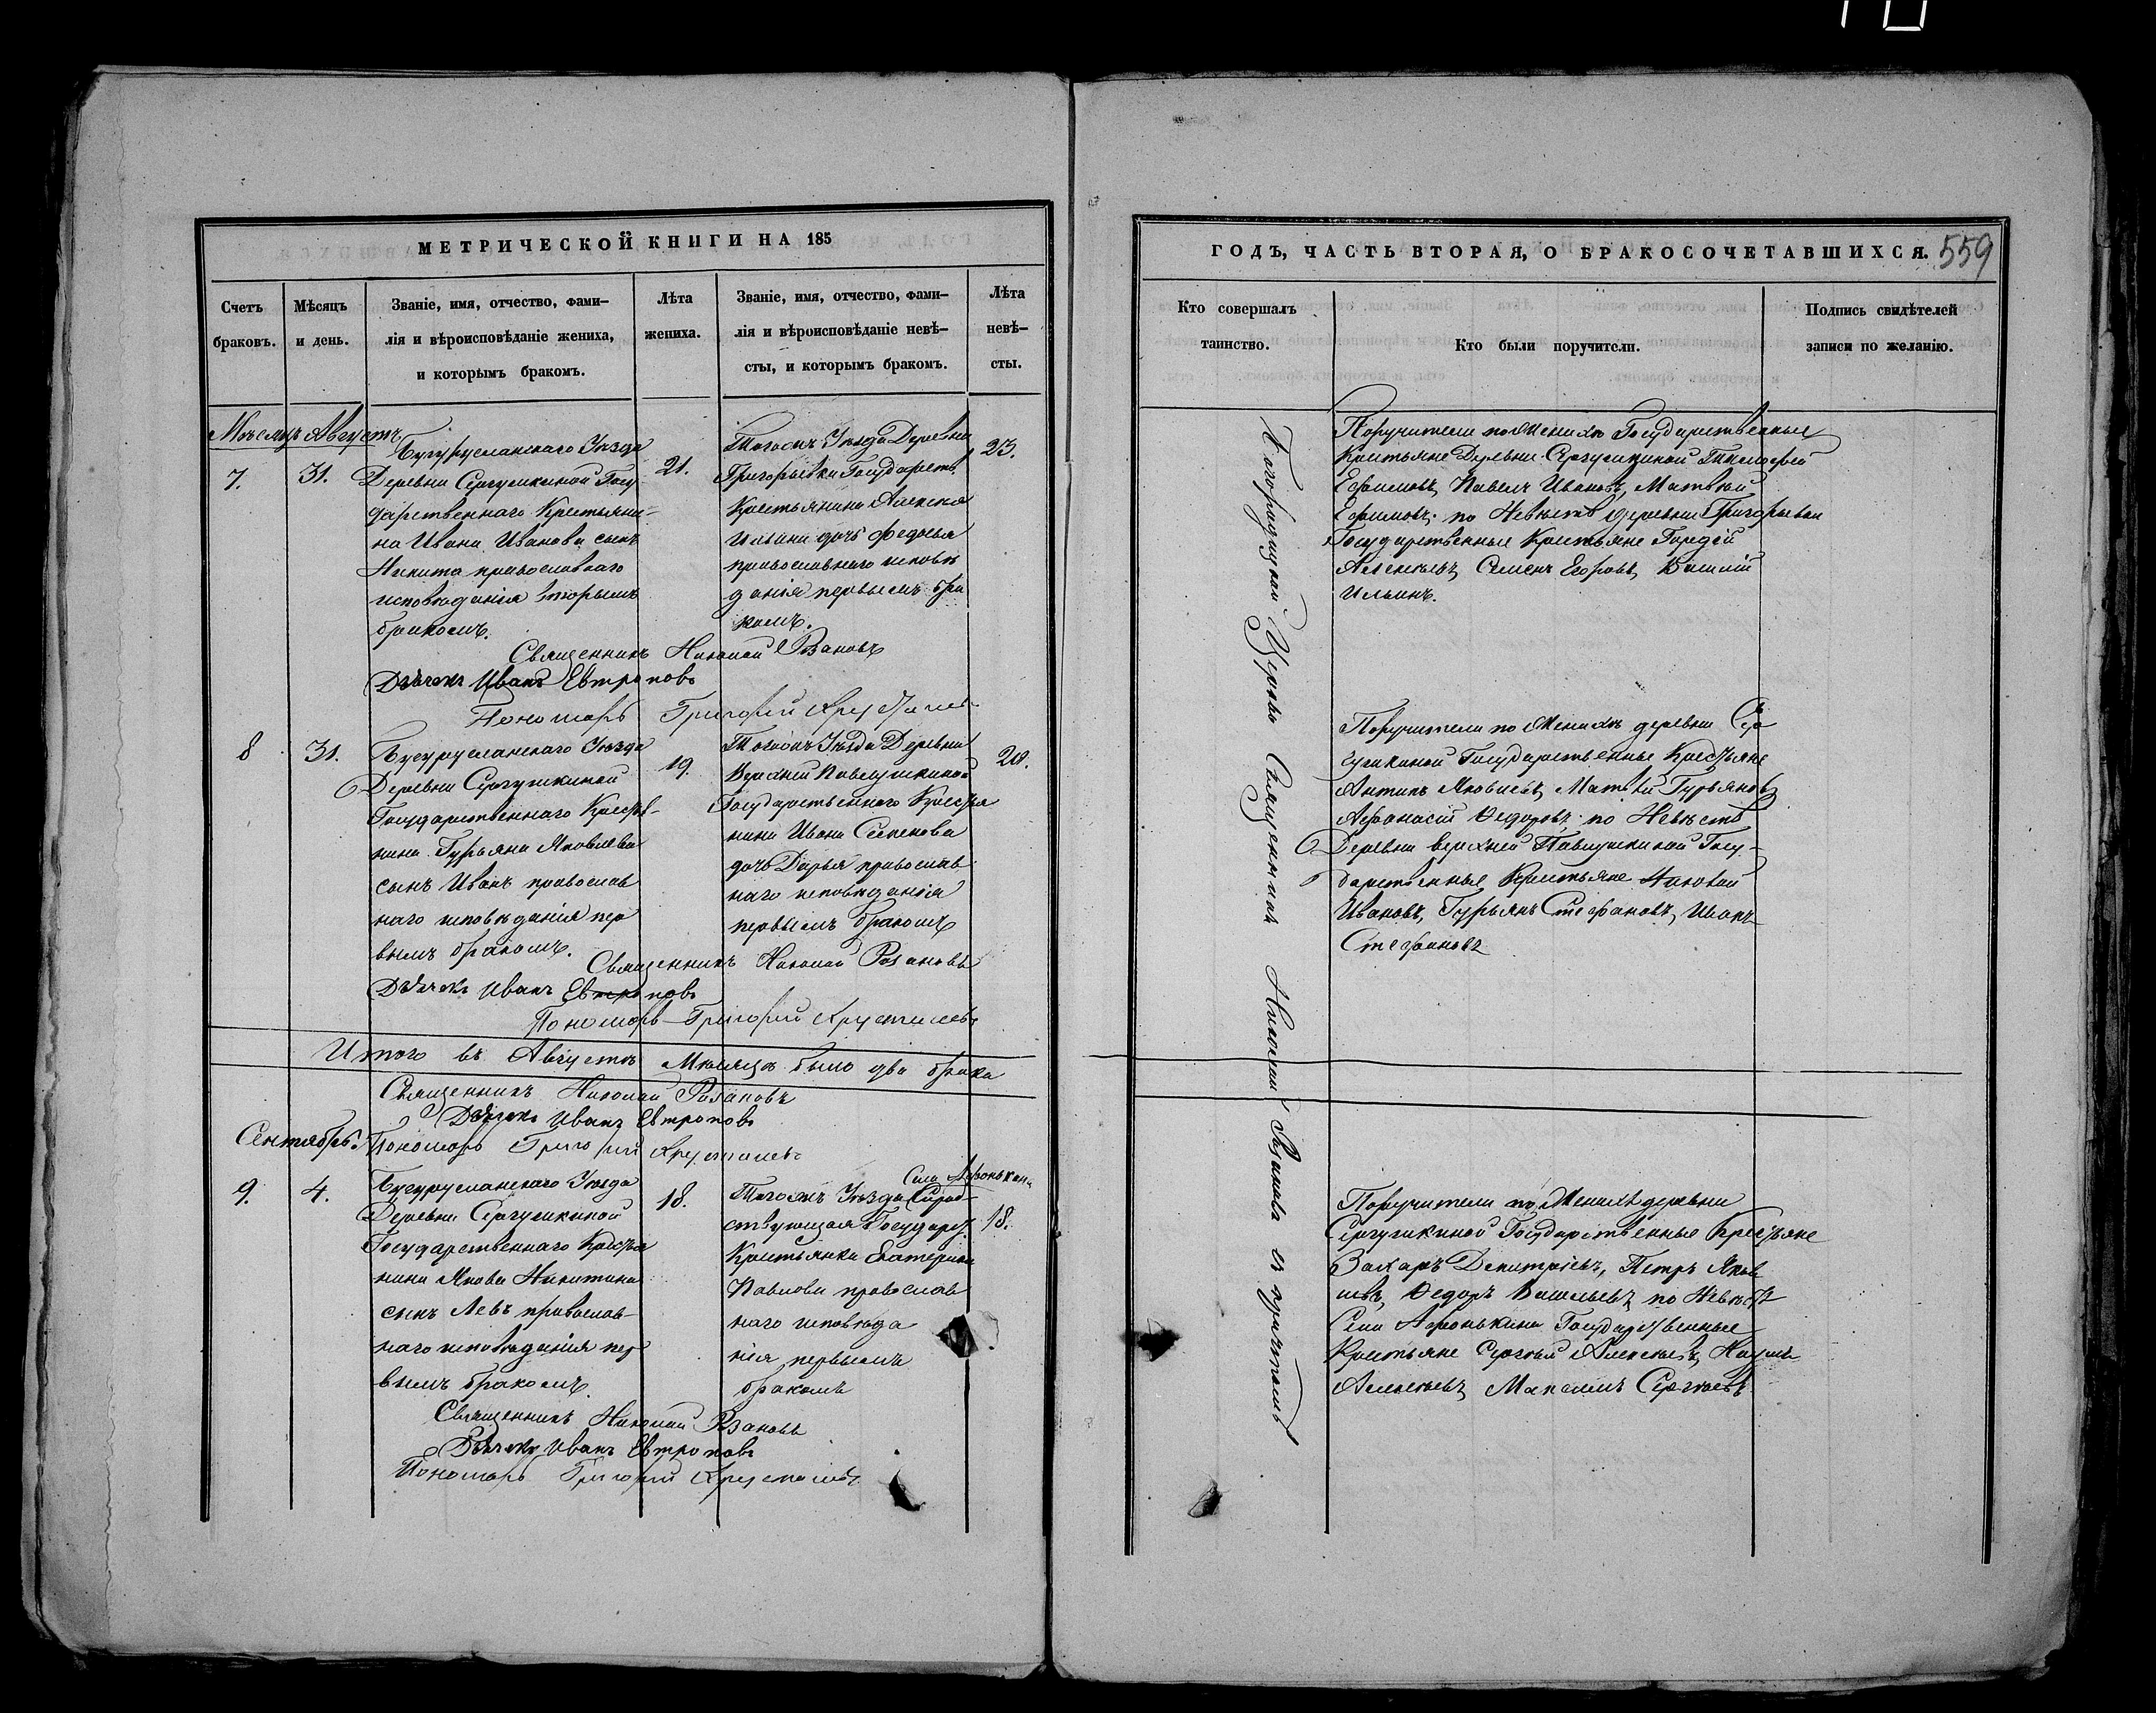 МЕТРИЧЕСКОЙ КНИГИ НА 185
Счетъ браковъ.
Мѣсяцъ и день.
Званіе, имя, отчество, фами-
лія и вѣроисповѣданіе жениха,
и которымъ бракомъ.
Лѣта
жениха.
Званіе, имя, отчество, фами-
лія и вѣроисповѣданіе невѣ-
сты, и которымъ бракомъ.
Лѣта
невѣ-
сты.
Мѣсяцъ Августъ
7.
31.
Бугурусланскаго Уѣзда
Деревни Сергушкиной Госу
дарственнаго Крестьяни-
на Ивана Иванова сынъ
Никита православнаго
исповѣданія вторымъ
бракомъ.
21.
Тогожъ Уѣзда Деревни
Григорьевки Государств.
Крестьянина Алексѣя
Ильина дочь Федосья
православнаго исповѣ
данія первымъ бра
комъ.
23.
Священникъ Николай Розановъ
Дьячекъ Иванъ Евтроповъ
Пономарь Григорій
8
31.
Бугурусланскаго Уѣзда
Деревни Сергушкиной
Государственнаго Крестья-
нина Гурьяна Яковлева
сынъ Иванъ православ
наго исповѣданія пер
вымъ бракомъ.
19.
Тогожъ Уѣзда Деревни
Верхней Павлушкиной
Государственнаго Крестья
нина Ивана Семенова
дочь Дарья православ
наго исповѣданія
первымъ бракомъ
20.
Священникъ Николай Розановъ
Дьячекъ Иванъ Евтроповъ
Пономарь Григорій
Итого въ Августѣ Мѣсяцѣ было два брака
Священникъ Николай Розановъ
Дьячекъ Иванъ Евтроповъ
Сентябрь.
Пономарь Григорій
9.
4.
Бугурусланскаго Уѣзда
Деревни Сергушкиной
Государственнаго Крестья
нина Якова Никитина
сынъ Левъ православ-
наго исповѣданія пер
вымъ бракомъ.
18.
Села Афонькина
Тогожъ Уѣзда
ствующая Государст.
Крестьянка Екатерина
Павлова православ
наго исповѣда
нія первымъ
бракомъ
18.
Священникъ Николай Розановъ
Дьячекъ Иванъ Евтроповъ
Пономарь Григорій
ГОДЪ, ЧАСТЬ ВТОРАЯ, О БРАКОСОЧЕТАВШИХСЯ.
559
Кто совершалъ
таинство.
Кто были поручители.
Подпись свидѣтелей
записи по желанію.
Церкви Священникъ Николай Розановъ съ причтомъ
Поручители по Женихѣ Государственные
Крестьяне Деревни Сергушкиной Тимофей
Ефимовъ, Павелъ Ивановъ, Матвѣй
Ефимовъ; по Невѣстѣ деревни Григорьевки
Государственные Крестьяне Гордѣй
Алексѣевъ, Семенъ Егоровъ, Василій
Ильинъ.
Поручители по Женихѣ деревни Сер
гушкиной Государственные Крестьяне
Антипъ Яковлевъ, Матвѣй Гурьяновъ
Афанасій Федоровъ; по Невѣстѣ
Деревни верхней Павлушкиной Госу-
дарственные Крестьяне Николай
Ивановъ, Гурьянъ Стефановъ, Иванъ
Стефановъ
Поручители по Женихѣ деревни
Сергушкиной Государственные Крестьяне
Захаръ Дмитріевъ, Петръ Яков
левъ, Федоръ Васильевъ, по Невѣстѣ
Села Афонькина Государственные
Крестьяне Сергѣй Алексѣевъ, Наумъ
Алексѣевъ, Максимъ Сергѣевъ